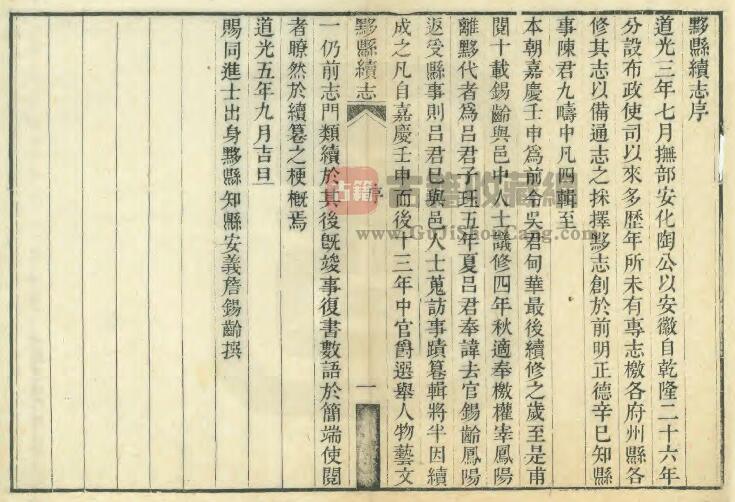 黟縣續志序
道光三年七月撫部安化陶公以安徽自乾隆二十六年
分設布政使司以來多歷年所未有專志檄各府州縣各
修其志以備通志之採擇黟志創於前明正德辛巳知縣
事陳君九疇中凡四輯至
本朝嘉慶壬申為前令吳君甸華最後續修之歲至是甫
閱十載錫齡與邑中人士議修四年秋適奉檄權宰鳳陽
離黟代者為呂君子珏五年夏呂君奉諱去官錫齡鳳陽
返受縣事則呂君巳與邑人士蒐訪事蹟篹輯將半因續
成之凡自嘉慶壬申而後十三年中官爵選舉人物藝文
黟縣續志
序
一
一仍前志門類續於其後旣竣事復書數語於簡端使閱
者瞭然於續篹之梗概焉
道光五年九月吉旦
賜同進士出身黟縣知縣安義詹錫齡撰
古籍
古籍收藏網
www.GuJiShouCang.com